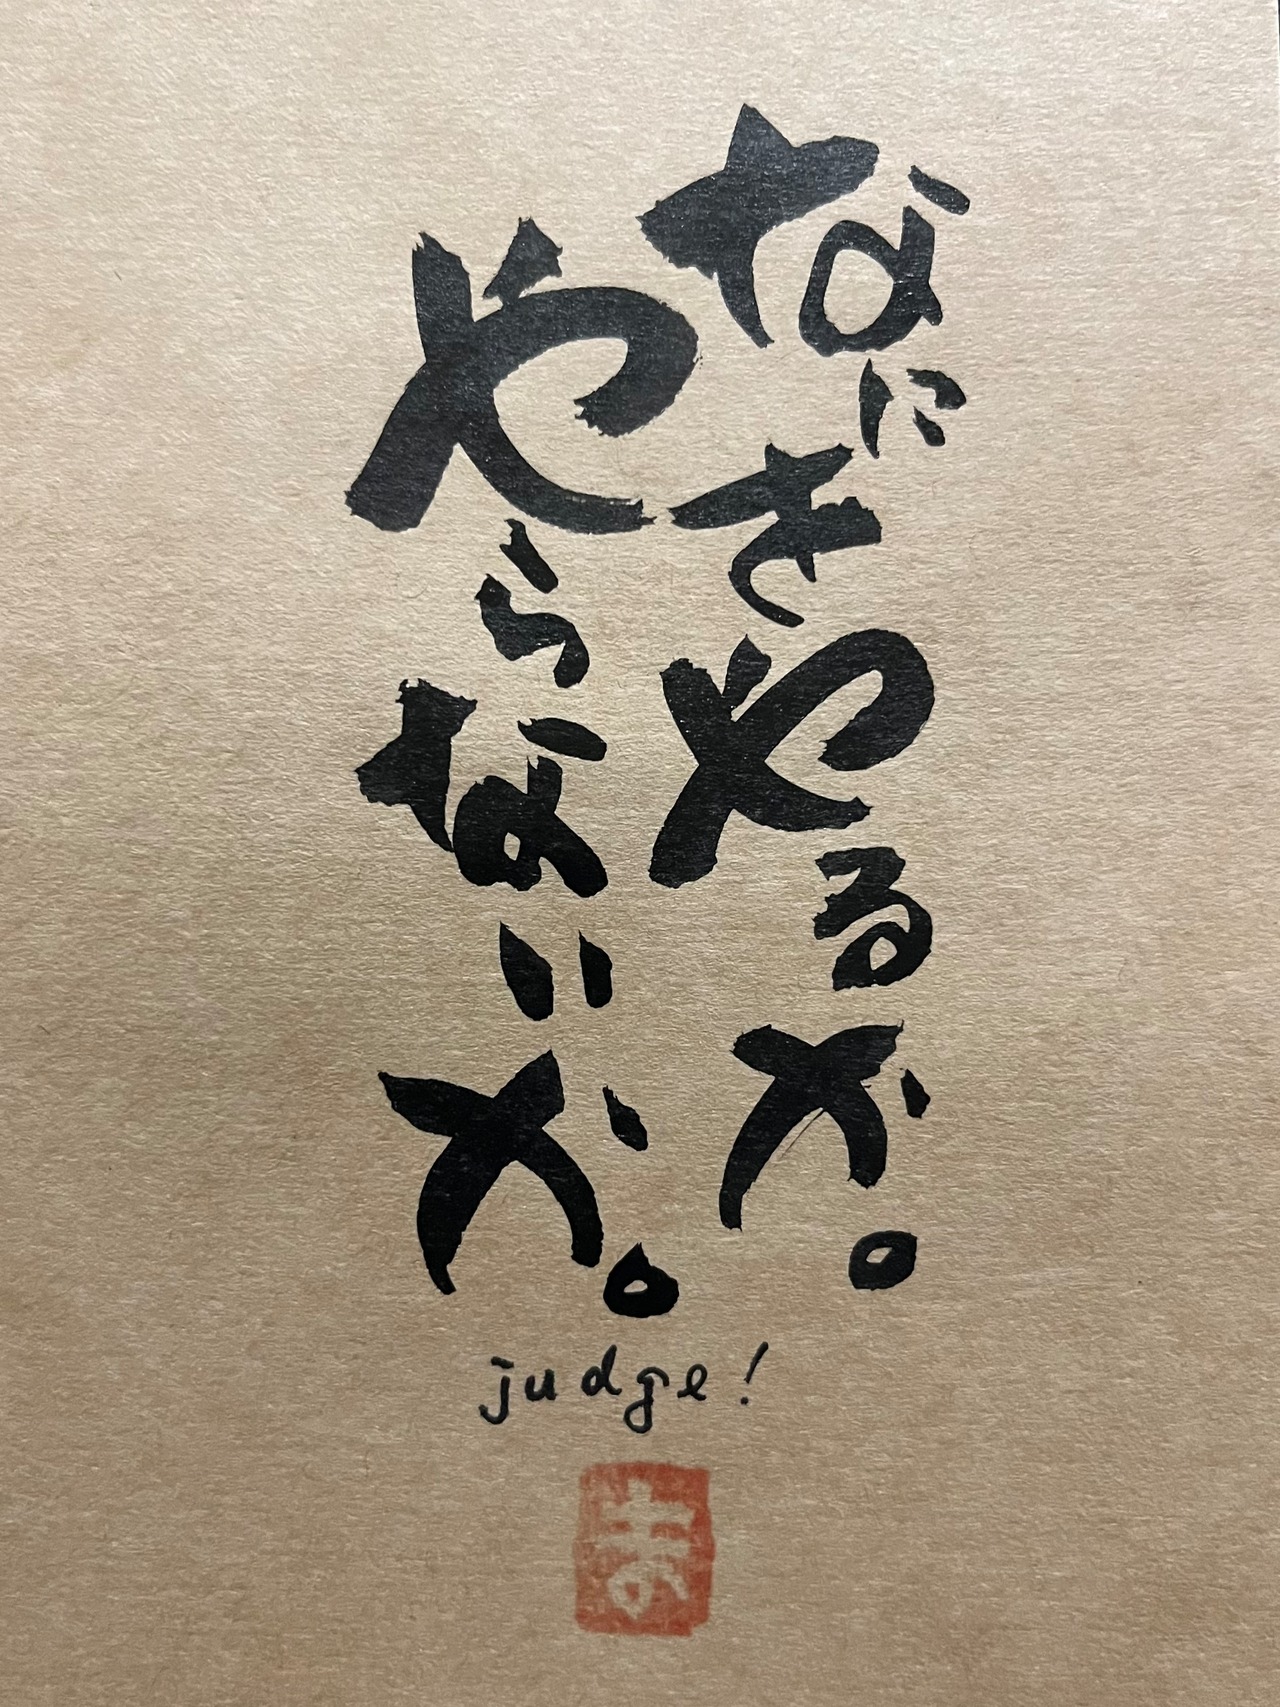 なにをやるか。
やらないか。
judge!
ま